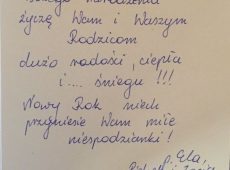 Narodzenia
życzę Wam i Waszym
Rodzicom
dużo radości, ciepła
i .... śniegu !!!
Nowy Rok niech
przyniesie Wam miłe
niespodzianki !
p. Ela,